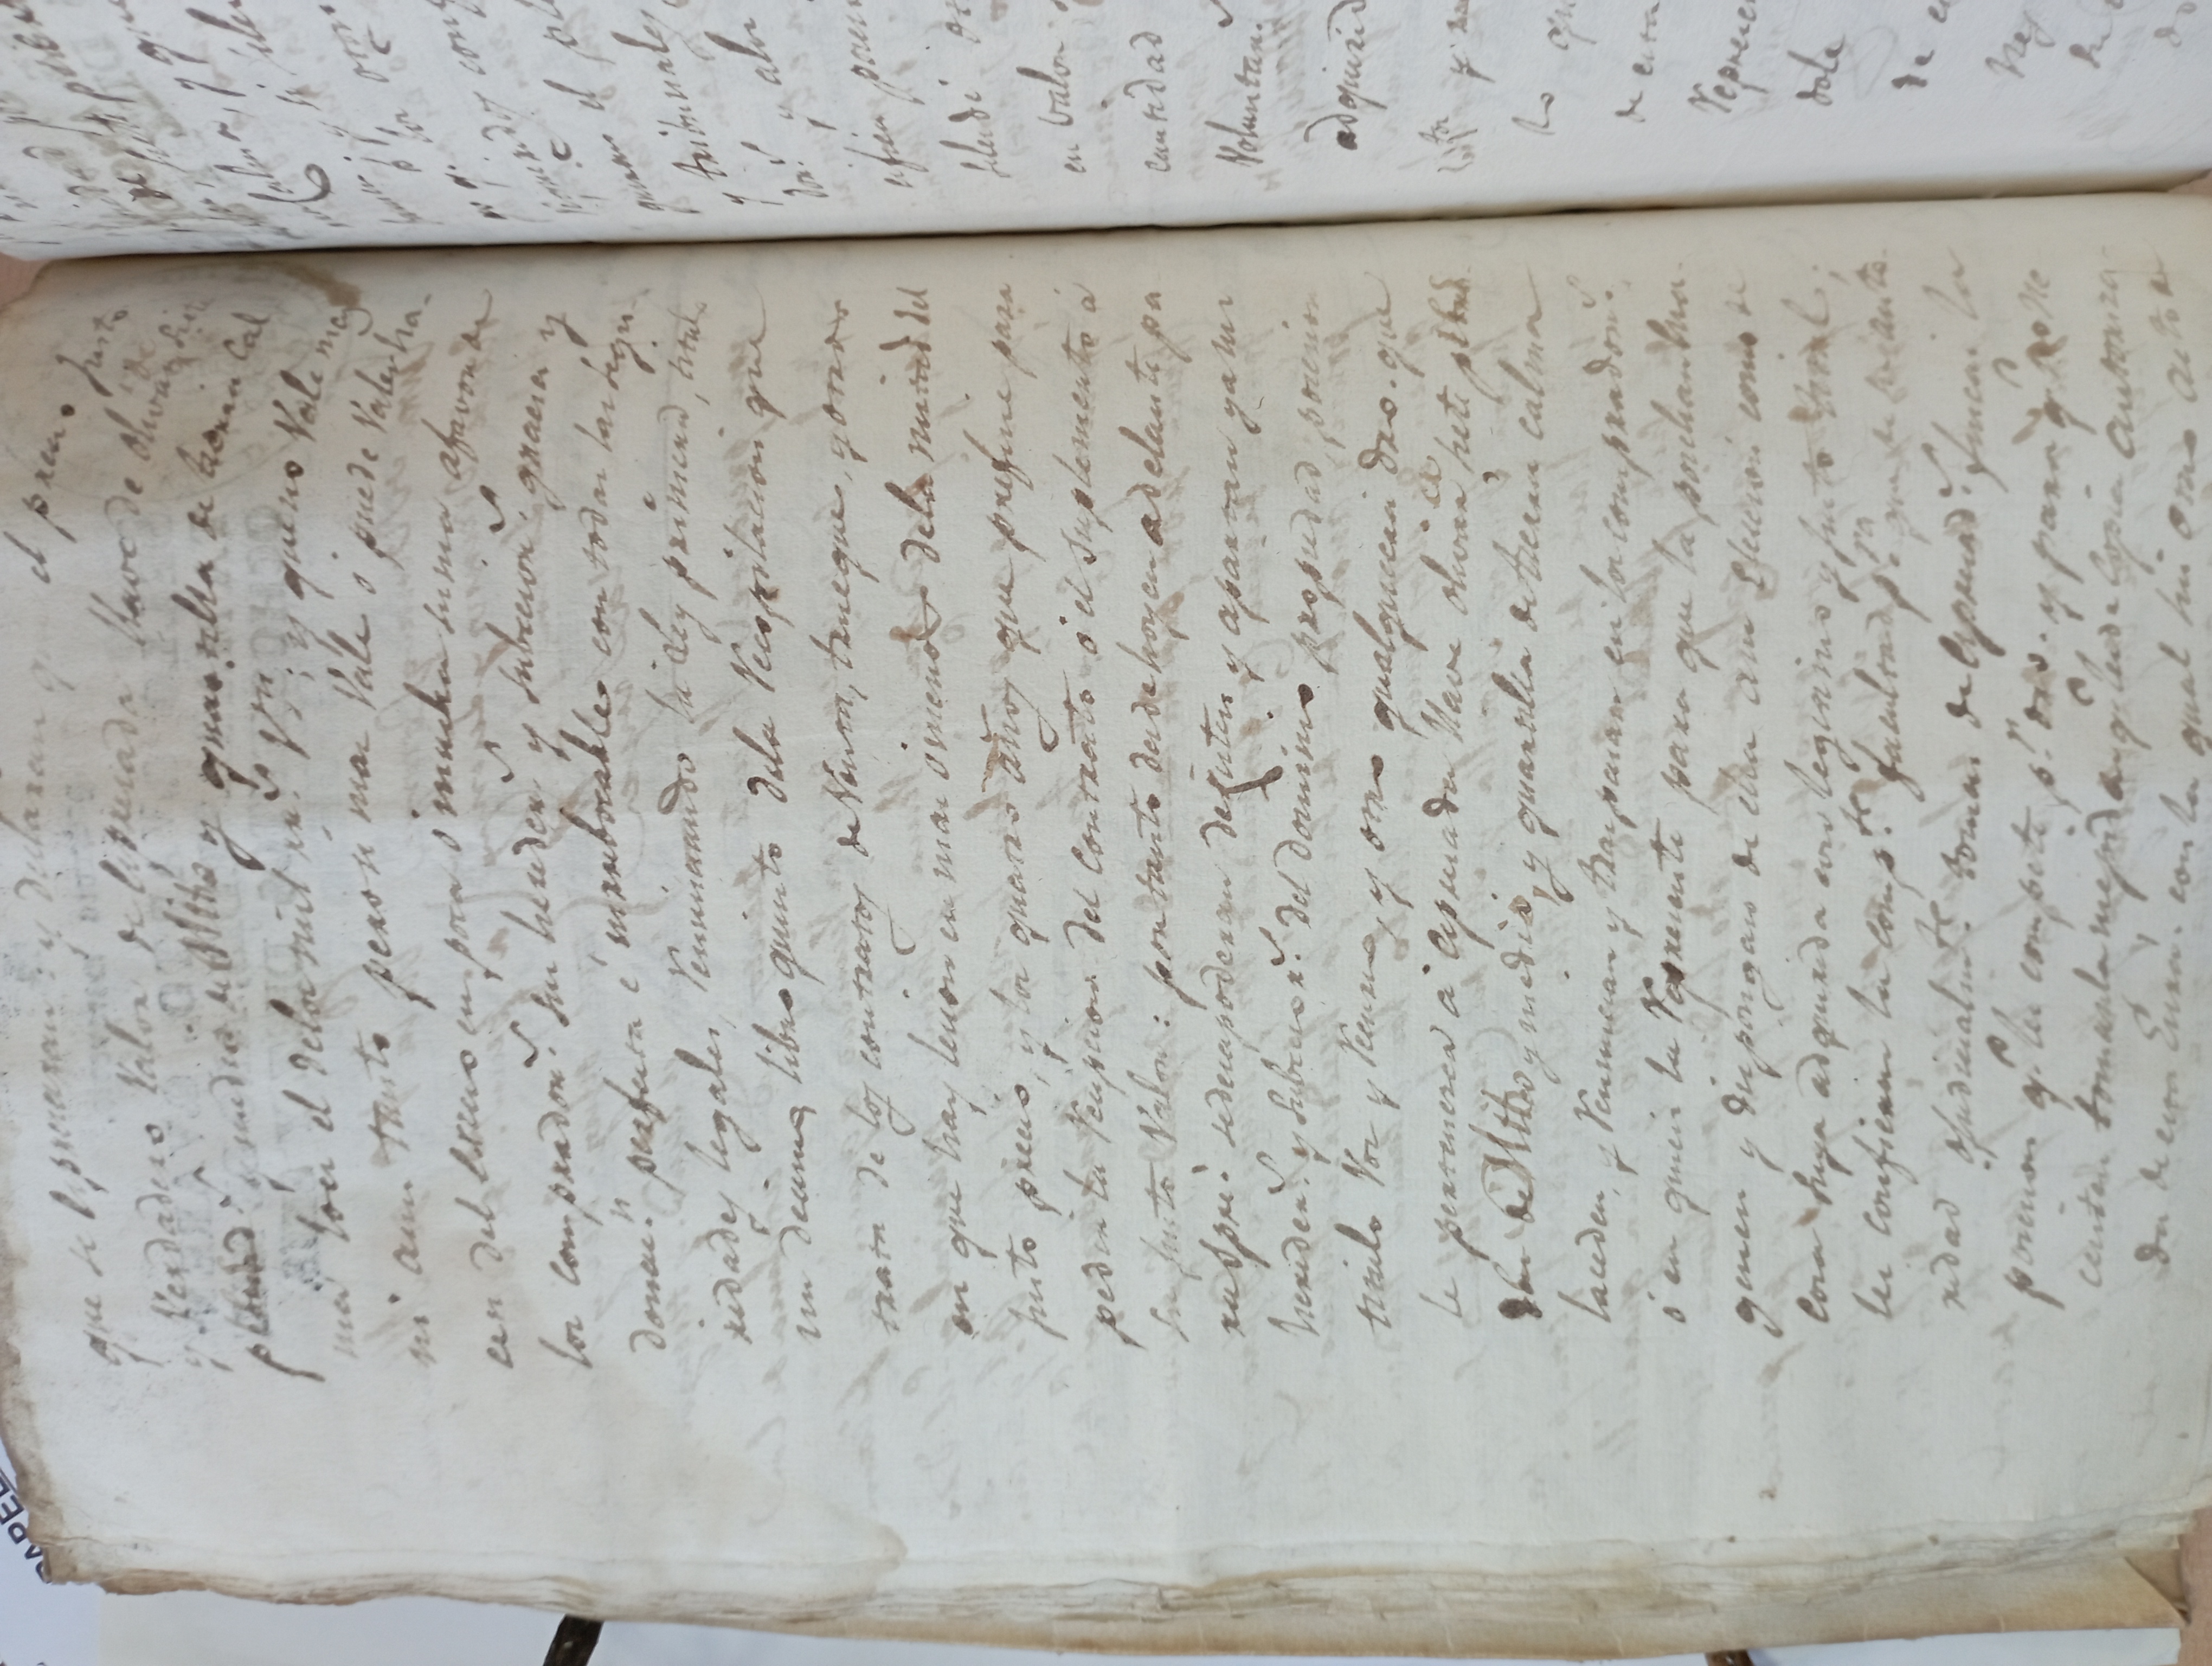 que se expresaran: y declaran que el precio justo
y Verdadero Valor de expresada Nave de olivar, de siete
pebrad.s y media de y quartilla de tierra cal
ma es el de los mil rr.s Vn.; y que no Vale mas
ni aun tanto pero si mas Vale ó puede Valer ha-
cen del exceso en poca ó mucha suma a favor de
los comprador.s sus hereder.s y subcesor.s gracia y
donac.n perfecta é irrebocable con todas las segu-
ridades legales, Renunciando la Ley primera, titulo
un decimo, libro quinto dela Recopilacion que
trata de los contratos de Venta, trueque, y otros
en que hay lesion en mas ó menos dela mitad del
justo precio, y los quatro años que prefine para
pedir la Recipcion del contrato ó el suplemento á
su justo Valor: por tanto desde hoy en adelante pa
ra spre. se desapoderan desisten y apartan y a sus
hereder.s y subcesor.s del dominio propiedad, posesion
titulo Voz y Recurso, y otro qualquiera dro. que
le pertenesca á expresada Nave olivar siete pebra
das de y media, y quartilla de tierra calma
la ceden, y Renuncian y traspasan en los comprador.s
ó en quien la Represente para que la posehan ena-
genen y dispongan de ella a su eleccion como de
cosa suya adquirida con legitimo y justo titul;
les confieren la comp.te facultad p.ra que de su auto-
ridad ó judicialm.te tomen de expresad.s fincas la
posesion q.e les compete p.r dro. y para q.e no ne
cesiten tomarla me piden q.e les de copia autoriza-
da de esta Escra. con la qual sin otro acto de